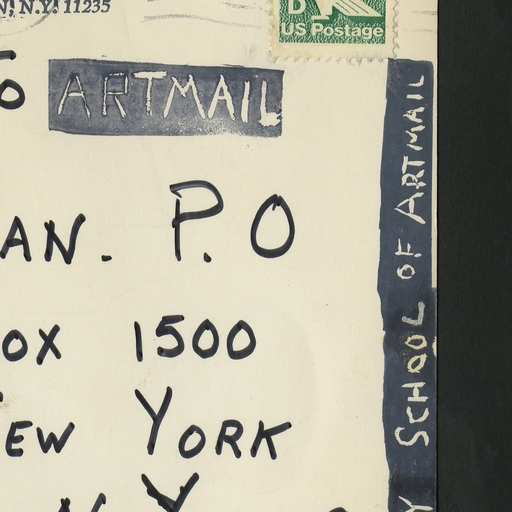 N.Y. 11235
D
US Postage
ARTMAIL
AN. P.O
OX 1500
EW YORK
N.Y
SCHOOL OF ARTMAIL